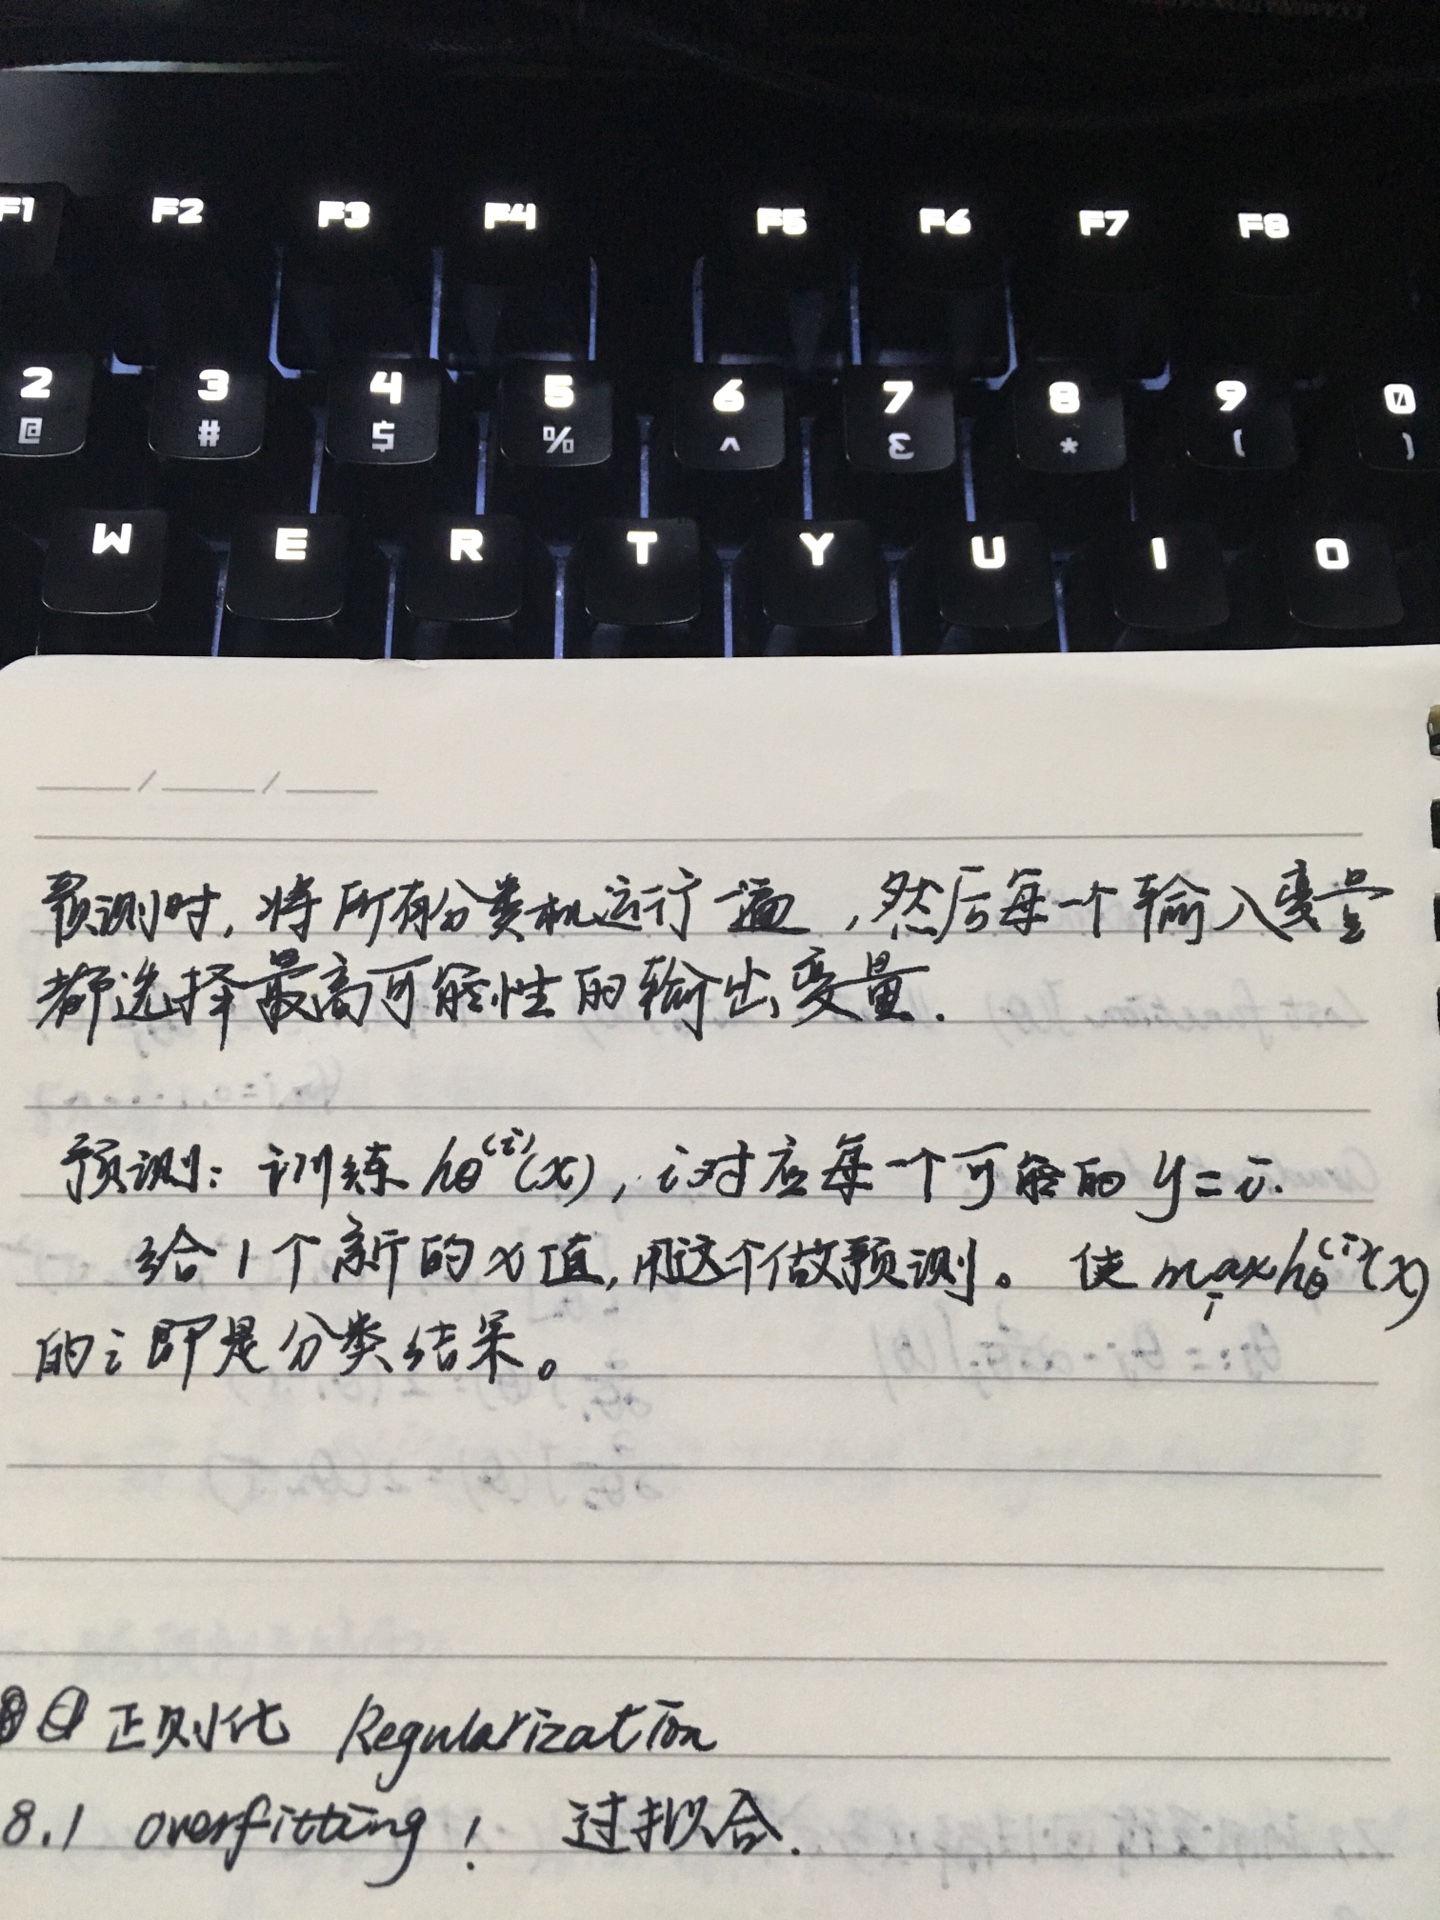 F1 F2 F3 F4 F5 F6 F7 F8
2 3 4 5 6 7 8 9 0
@ # $ % ^ & * ( )
W E R T Y U I O
预测时,将所有分类机运行一遍,然后每一个输入变量
都选择最高可能性的输出变量.
预测: 训练 hθ⁽ⁱ⁾(x), i对应每一个可能的 y=i.
给1个新的x值,用这个做预测。 使 max_i hθ⁽ⁱ⁾(x)
的i即是分类结果。
正则化 Regularization
8.1 overfitting! 过拟合.